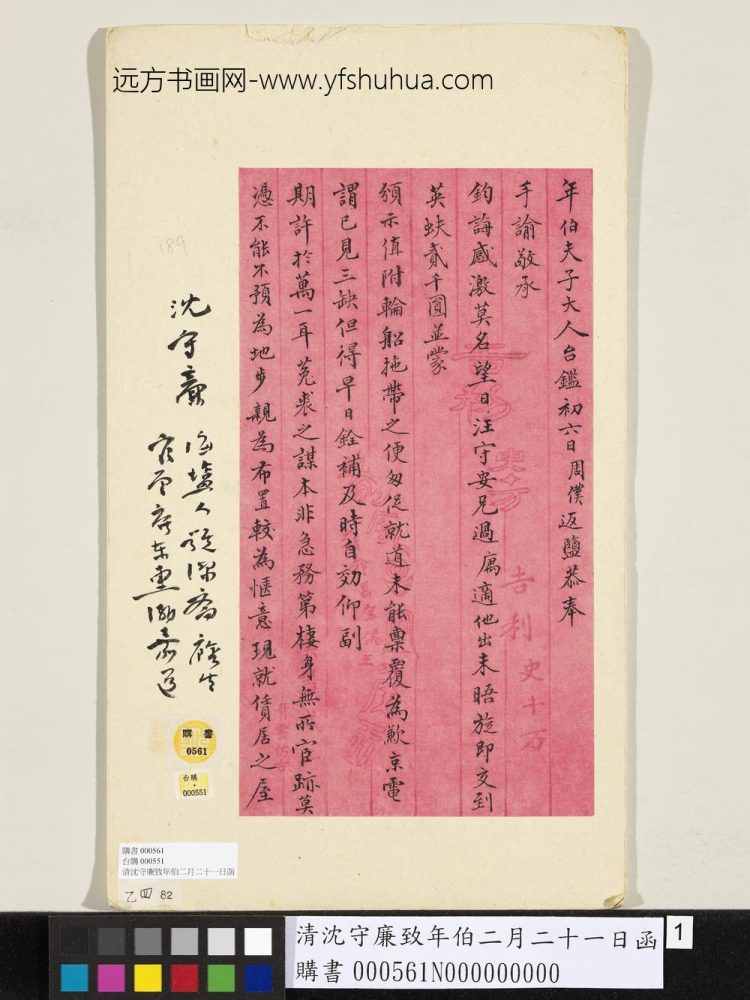 远方书画网-www.yfshuhua.com
年伯夫子大人台鑑初六日周僕返鹽恭奉
手諭敬承
鈞誨感激莫名望日汪守安兄過寓適他出未晤旋即交到
英蚨貳千圓並蒙
頒示值附輪船拖帶之便匆促就道未能稟覆為歉京電
謂已見三缺但得早日銓補及時自効仰副
期許於萬一耳菟裘之謀本非急務第棲身無所宦跡莫
憑不能不預為地步親為布置較為愜意現就賃居之屋
吉利
史十万
189
沈守廉 海鹽人
購書
0561
台購
000551
購書 000561
台購 000551
清沈守廉致年伯二月二十一日函
乙 四 82
清沈守廉致年伯二月二十一日函
購書 000561N000000000
1